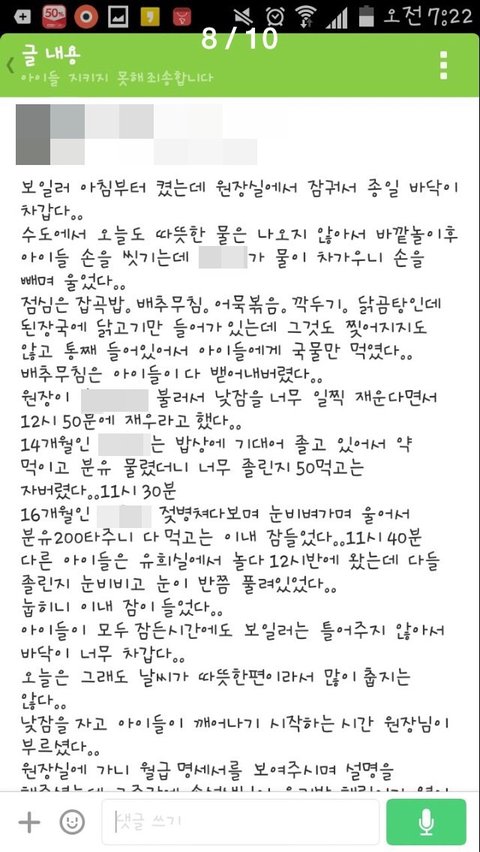 50%
오전 7:22
8 / 10
글 내용
아이들 지키지 못해죄송합니다
보일러 아침부터 켰는데 원장실에서 잠궈서 종일 바닥이
차갑다..
수도에서 오늘도 따뜻한 물은 나오지 않아서 바깥놀이후
아이들 손을 씻기는데 가 물이 차가우니 손을
빼며 울었다..
점심은 잡곡밥. 배추무침. 어묵볶음. 깍두기. 닭곰탕인데
된장국에 닭고기만 들어가 있는데 그것도 찢어지지도
않고 통째 들어있어서 아이들에게 국물만 먹였다..
배추무침은 아이들이 다 뱉어내버렸다..
원장이 불러서 낮잠을 너무 일찍 재운다면서
12시 50분에 재우라고 했다..
14개월인 는 밥상에 기대어 졸고 있어서 약
먹이고 분유 물렸더니 너무 졸린지 50먹고는
자버렸다..11시 30분
16개월인 젖병쳐다보며 눈비벼가며 울어서
분유200타주니 다 먹고는 이내 잠들었다..11시 40분
다른 아이들은 유희실에서 놀다 12시반에 왔는데 다들
졸린지 눈비비고 눈이 반쯤 풀려있었다..
눕히니 이내 잠이 들었다..
아이들이 모두 잠든시간에도 보일러는 틀어주지 않아서
바닥이 너무 차갑다..
오늘은 그래도 날씨가 따뜻한편이라서 많이 춥지는
않다..
낮잠을 자고 아이들이 깨어나기 시작하는 시간 원장님이
부르셨다..
원장실에 가니 월급 명세서를 보여주시며 설명을
댓글 쓰기